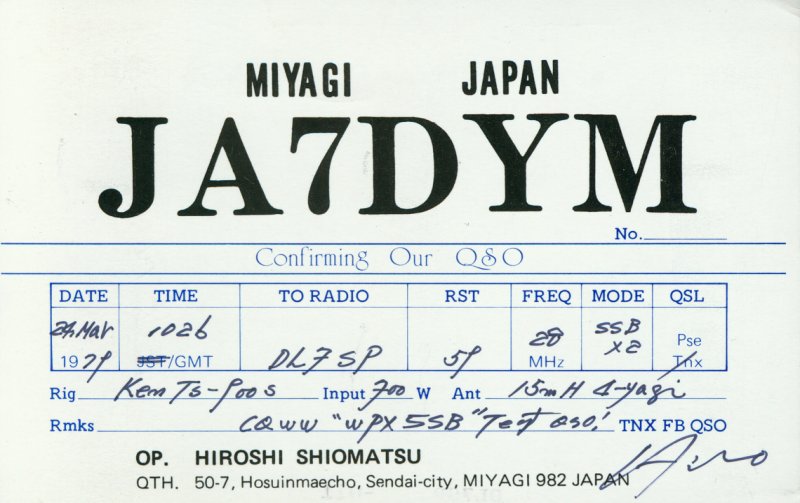 MIYAGI JAPAN
JA7DYM
No.
Confirming Our QSO
DATE TIME TO RADIO RST FREQ MODE QSL
24 Mar 1026 28 SSB Pse
1979 JST/GMT DL7SP 59 MHz X2 Tnx
Rig Ken TS-900s Input 700 W Ant 15mH 4-yagi
Rmks CQWW "WPX SSB" Test QSO! TNX FB QSO
OP. HIROSHI SHIOMATSU
QTH. 50-7, Hosuinmaecho, Sendai-city, MIYAGI 982 JAPAN